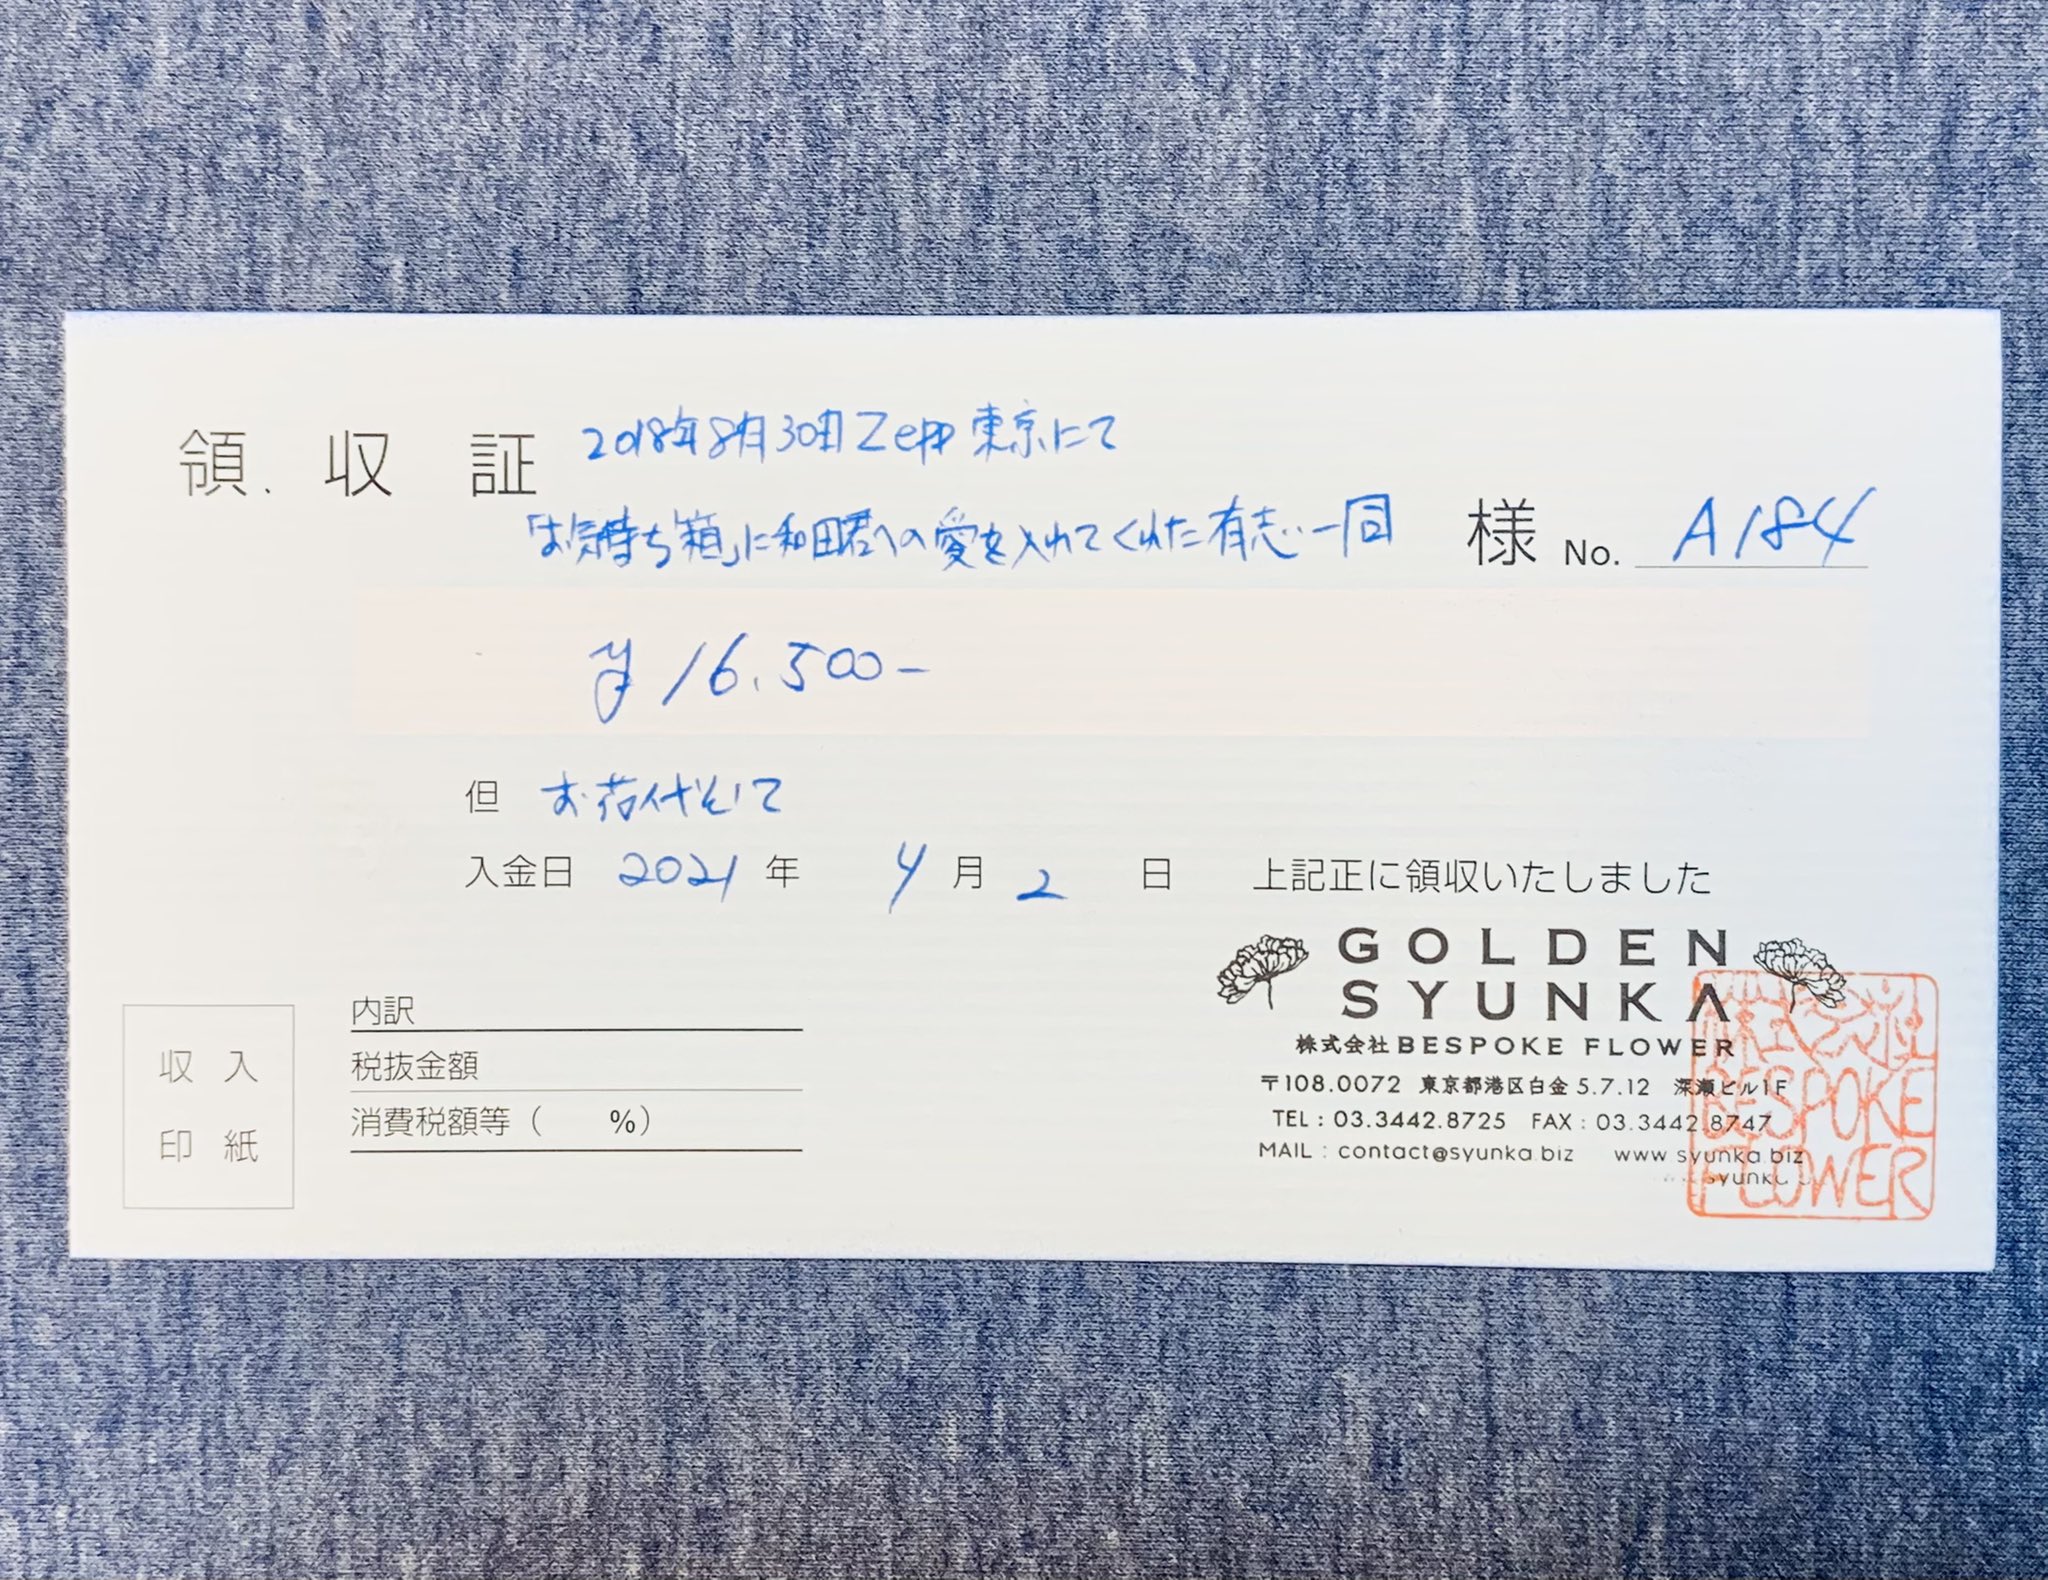 領収証
2018年8月30日Zepp東京にて
「お気持ち箱」に和田君への愛を入れてくれた有志一同 様 No. A184
¥16,500-
但 お花代として
入金日 2021年 4月 2日 上記正に領収いたしました
GOLDEN
SYUNKA
株式会社BESPOKE FLOWER
〒108.0072 東京都港区白金5.7.12 深瀬ビル1F
TEL : 03.3442.8725 FAX : 03.3442.8747
MAIL : contact@syunka.biz www syunka.biz
syunka
内訳
税抜金額
消費税額等（ %）
収入
印紙
BESPOKE
FLOWER